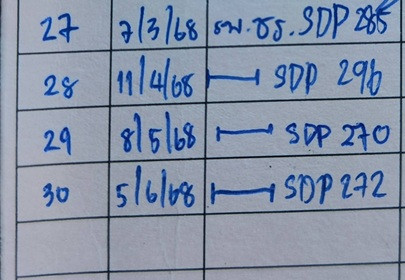 27 7/3/68 รพ.ธร. SDP 285
28 11/4/68 SDP 296
29 8/5/68 SDP 270
30 5/6/68 SDP 272